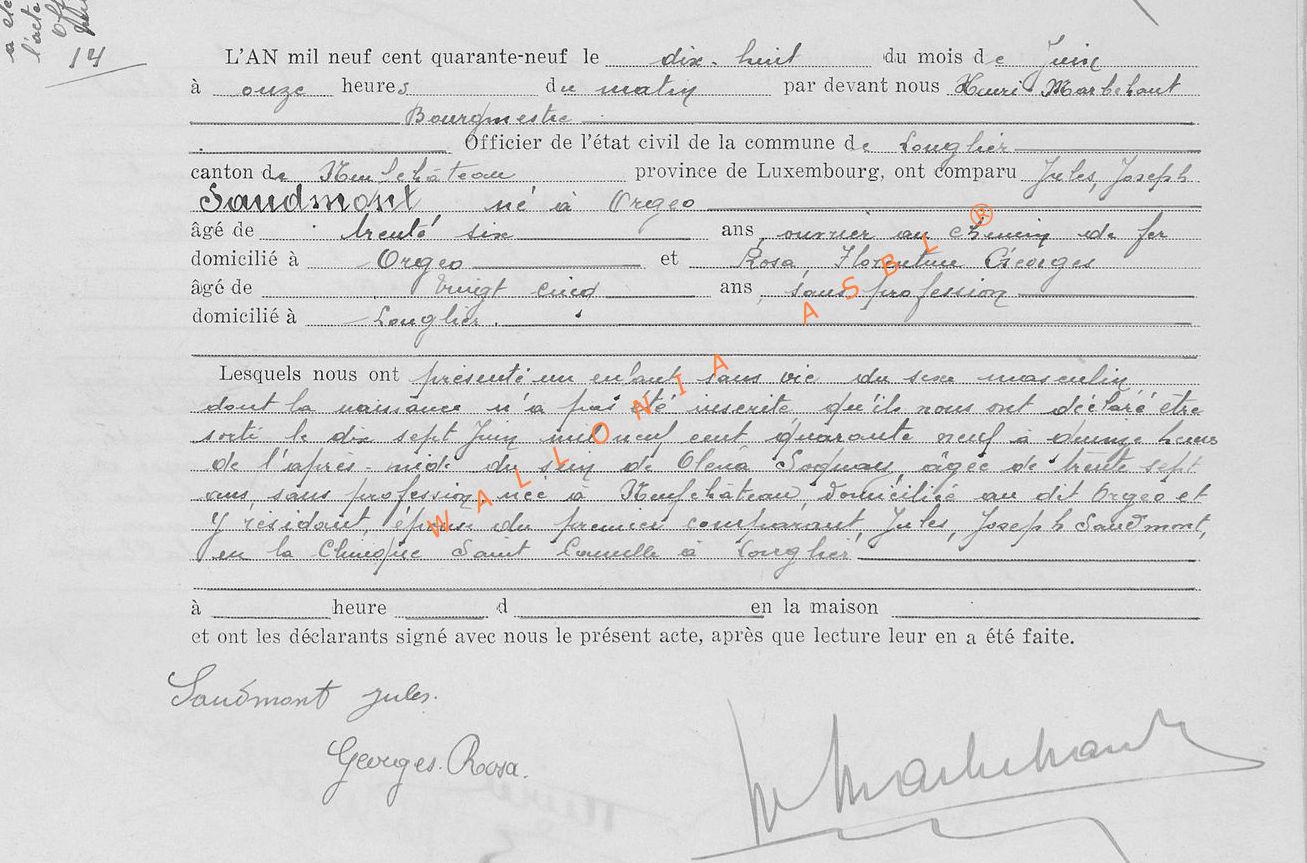 14
L'AN mil neuf cent quarante-neuf le dix-huit du mois de Juin
à onze heures du matin par devant nous Henri Marbehant
Bourgmestre
Officier de l'état civil de la commune de Longlier
canton de Neufchâteau province de Luxembourg, ont comparu Jules, Joseph
Saudmont né à Orgeo
âgé de trente six ans, ouvrier au chemin de fer
domicilié à Orgeo et Rosa, Florentine Georges
âgé de vingt cinq ans, sans profession
domicilié à Longlier.
Lesquels nous ont présenté un enfant sans vie du sexe masculin
dont la naissance n'a pas été inscrite qu'ils nous ont déclaré être
sorti le dix sept Juin mil neuf cent quarante neuf à heures
de l'après-midi du sein de âgée de trente sept
ans, sans profession, née à Neufchâteau, domiciliée au dit Orgeo et
y résidant, épouse du premier comparant, Jules, Joseph Saudmont,
en la Clinique Saint Camille à Longlier
à heure d en la maison
et ont les déclarants signé avec nous le présent acte, après que lecture leur en a été faite.
Saudmont Jules.
Georges. Rosa.
H Marbehant
WALLONIA ASBL ®